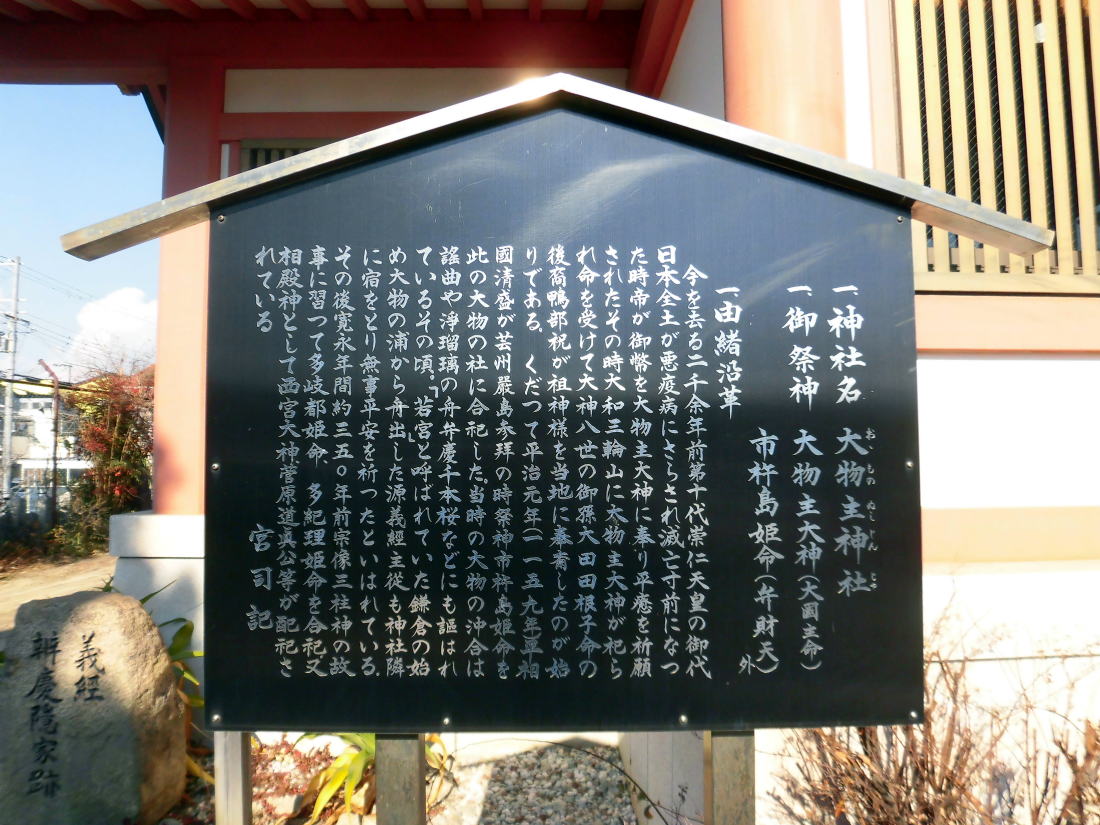 一、神社名 大物主神社
おおものぬしじんじゃ
一、御祭神 大物主大神(大国主命)
市杵島姫命(弁財天)
外
一、由緒沿革
今を去る二千余年前第十代崇仁天皇の御代
日本全土が悪疫病にさらされ滅亡寸前になつ
た時帝が御幣を大物主大神に奉り平癒を祈願
されたその時大和三輪山に大物主大神が祀ら
れ命を受けて大神八世の御孫大田田根子命の
後裔鴨部祝が祖神様を当地に奉斎したのが始
りである。くだつて平治元年(一一五九年)平相
國清盛が芸州嚴島参拝の時祭神市杵島姫命を
此の大物の社に合祀した。当時の大物の沖合は
謡曲や浄瑠璃の舟弁慶千本桜などにも謳はれ
ているその頃。「若宮」と呼ばれていた鎌倉の始
め大物の浦から舟出した源義經主從も神社隣
に宿をとり無事平安を祈つたといはれている。
その後寛永年間約三五〇年前宗像三柱神の故
事に習つて多岐都姫命、多紀理姫命を合祀又
相殿神として西宮大神菅原道真公等が配祀さ
れている
宮司記
義經
辨慶隠家跡